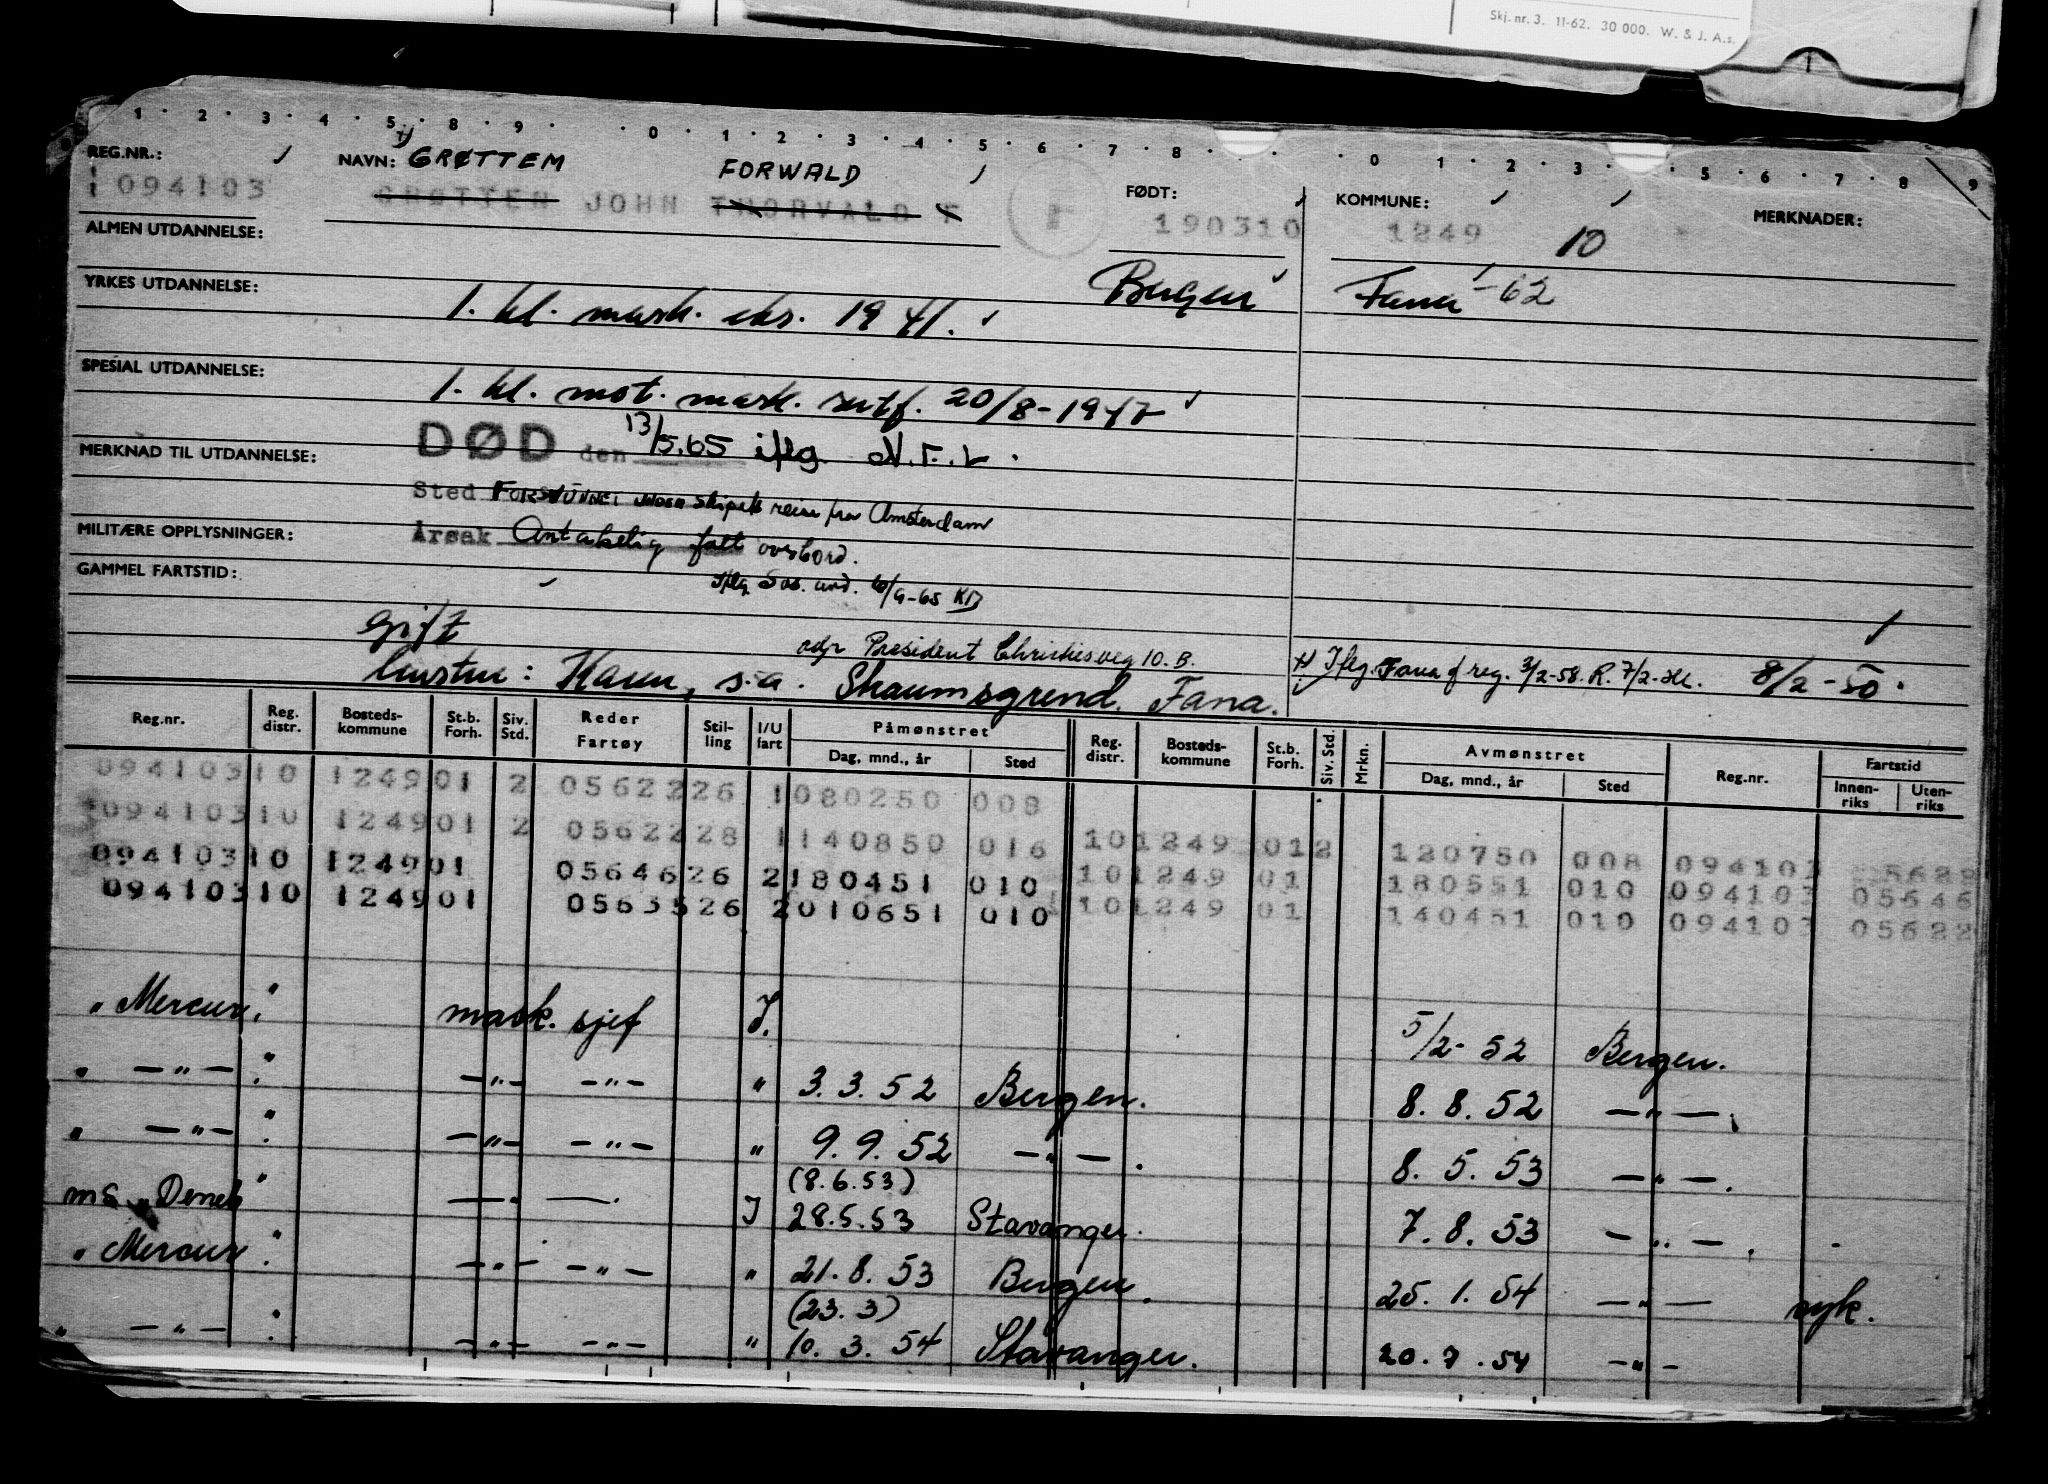 Skj. nr. 3. 11-62. 30 000. W. & J. A.s.
1 · 2 · 3 · 4 · 5 · 8 · 9 · · 0 · 1 · 2 · 3 · 4 · 5 · 6 · 7 · 8 · · · 0 · 1 · 2 · 3 · · 5 · 6 · 7 · 8 · 9
REG.NR.: NAVN: GRØTTEM FORWALD FØDT: KOMMUNE: MERKNADER:
094103 GRØTTEN JOHN THORVALD F 190310 1249 10
ALMEN UTDANNELSE:
Bergen Fana -62
YRKES UTDANNELSE: 1. kl. mask. eks. 1941.
SPESIAL UTDANNELSE: 1. kl. mot. mask. sertf. 20/8-1947
MERKNAD TIL UTDANNELSE: DØD den 13/5.65 iflg. N.T.L.
Sted FORSVUNNET under skipets reise fra Amsterdam
MILITÆRE OPPLYSNINGER: Årsak Antakelig falt overbord.
GAMMEL FARTSTID: - Iflg. 6/9-65
gift adr President Christiesveg 10. B.
hustru: Karen, s.a. Skaumsgrend. Fana. Iflg. Fana f reg. 3/2-58. R. 7/2- 8/2-50.
Reg.nr. Reg. distr. Bosteds- kommune St.b. Forh. Siv. Std. Reder Fartøy Stil- ling I/U fart Påmønstret Reg. distr. Bosteds- kommune St.b. Forh. Siv. Std. Mrkn. Avmønstret Reg.nr. Fartstid
Dag, mnd., år Sted Dag, mnd., år Sted Innen- riks Uten- riks
09410310 124901 2 0562226 1080250 008
09410310 124901 2 0562228 1140850 016 101249 012 120750 008 094103
09410310 124901 0564626 2180451 010 101249 01 180551 010 094103 05646
09410310 124901 0563526 2010651 010 101249 01 140451 010 094103 05622
"Mercur". mask. sjef I. 5/2-52 Bergen.
" — " — ". — " — — " — " 3.3.52 Bergen. 8.8.52 — " —.
" — " — ". — " — — " — " 9.9.52 — " —. 8.5.53 — " —.
(8.6.53)
ms "Deneb" — " — I 28.5.53 Stavanger. 7.8.53 — " —.
"Mercur". — " — — " — " 21.8.53 Bergen. 25.1.54 — " — syk.
(23.3)
" — " — ". — " — — " — " 10.3.54 Stavanger. 20.7.54 — " —